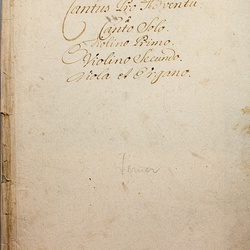 Cantus Pro Adventu
a
Canto Solo.
Violino Primo.
Violino Secundo.
Viola et Organo.